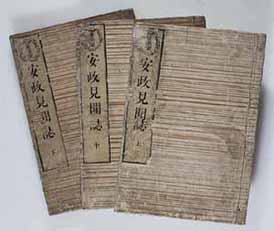 安政見聞誌 上
安政見聞誌 中
安政見聞誌 下